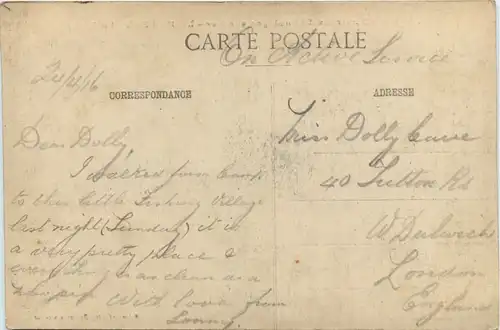 CARTE POSTALE
On Active Service
24/4/16
CORRESPONDANCE
ADRESSE
Dear Dolly,
I walked from Camp
to this little Fishing Village
last night (Sunday) it is
a very pretty place &
everything as clean as a
new pin With love from
Miss Dolly Cave
40 Sutton Rd
W. Dulwich
London
England